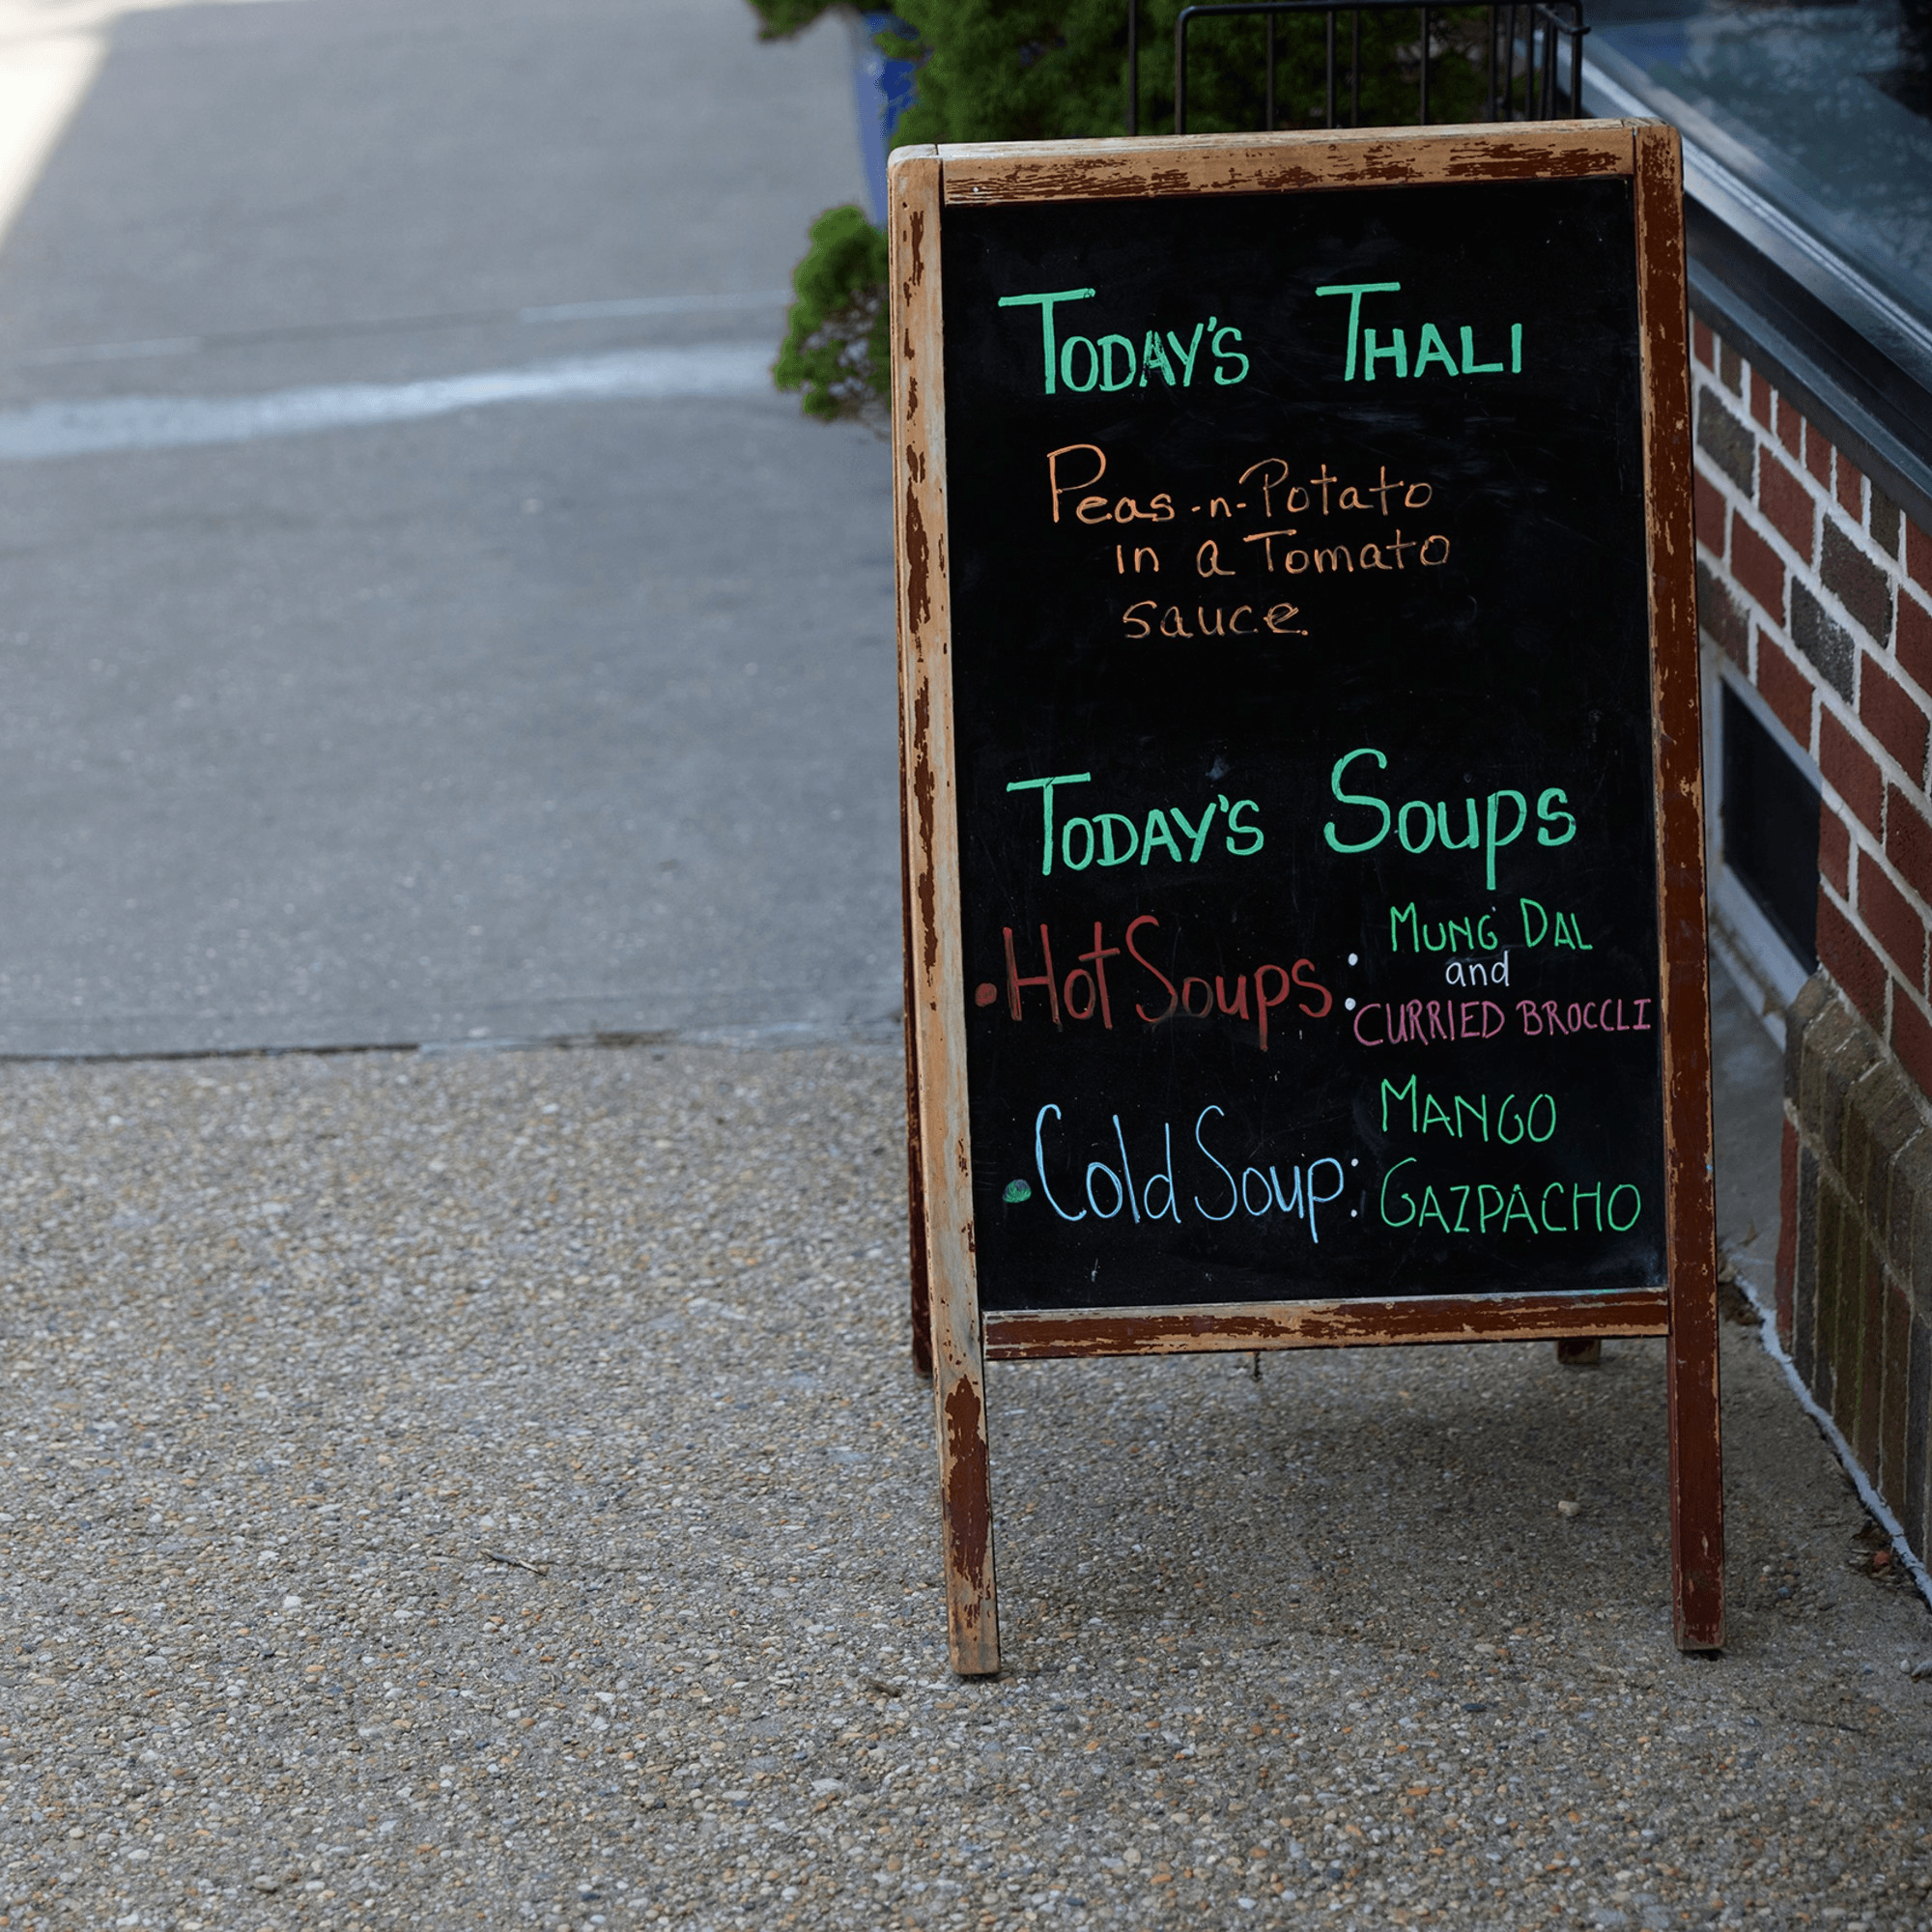 TODAY'S THALI
Peas-n-Potato
in a Tomato
sauce.
TODAY'S Soups
• Hot Soups :
MUNG DAL
and
CURRIED BROCCLI
• Cold Soup :
MANGO
GAZPACHO